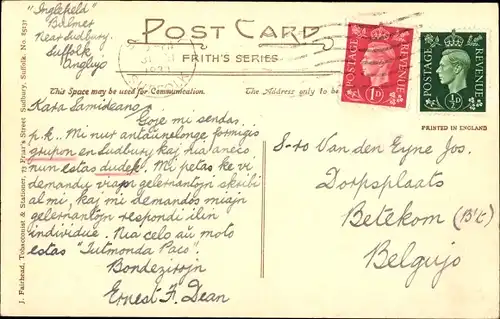 "Inglefield"
Bulmer
Near Sudbury
Suffolk
Anglujo
POST CARD
FRITH'S SERIES
This Space may be used for Communication.
The Address only to be
Kara Samideano
Goje mi sendas
p.k. Mi nur antaŭnelonge formigis
grupon en Sudbury kaj nia aneco
nun estas dudek. Mi petas ke vi
demandu viajn gelernantojn skribi
al mi, kaj mi demandos miajn
gelernantojn respondi ilin
individue. Nia celo aŭ moto
estas "Tutmonda Paco".
Bondezirojn
Ernest F. Dean
J. Fairhead, Tobacconist & Stationer, 73 Friar's Street Sudbury, Suffolk. No. 85137
POSTAGE
REVENUE
1D
POSTAGE
REVENUE
½D
PRINTED IN ENGLAND
S-ro Van den Eyne Jos.
Dorpsplaats
Betekom (B't)
Belgujo